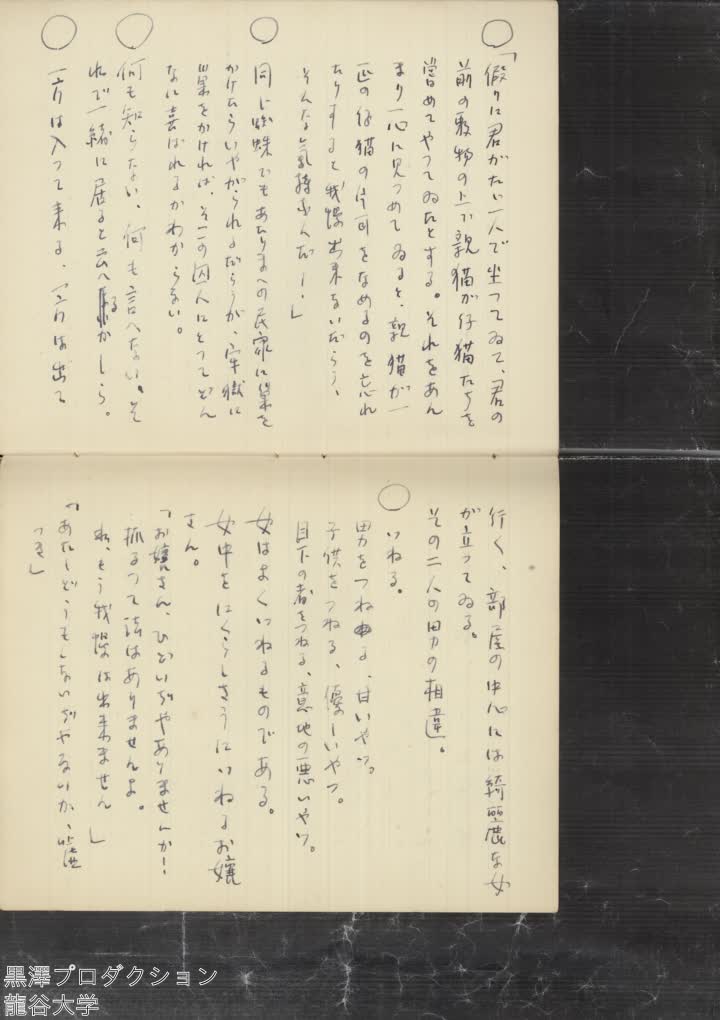 ○
「假りに君がたつた一人で坐つてゐて、君の
前の敷物の上で親猫が仔猫たちを
嘗めてやつてゐたとする。それをあん
まり一心に見つめてゐると、親猫が一
匹の仔猫の片耳をなめるのを忘れ
たりすると我慢出来ないだらう、
そんな気持なんだ——。」
○
同じ蜘蛛でもあたりまへの民家に巣を
かけたらいやがられるだらうが、牢獄に
巣をかければ、そこの囚人にとつてどん
なに喜ばれるかわからない。
○
何も知らない、何も言へない。そ
れで一緒に居ると云へるかしら。
○
一方は入つて来る、一方は出て
行く、部屋の中心には綺麗な女
が立つてゐる。
その二人の男の相違。
○
つねる。
男をつねる、甘いやつ。
子供をつねる、優しいやつ。
目下の者をつねる、意地の悪いやつ。
女はよくつねるものである。
女中をにくらしさうにつねるお嬢
さん。
「お嬢さん、ひどいぢやありませんか——
抓るつて法はありませんよ。
ね、もう我慢は出来ません」
「あたしどうもしないぢやないか、
つき」
黒澤プロダクション
龍谷大学